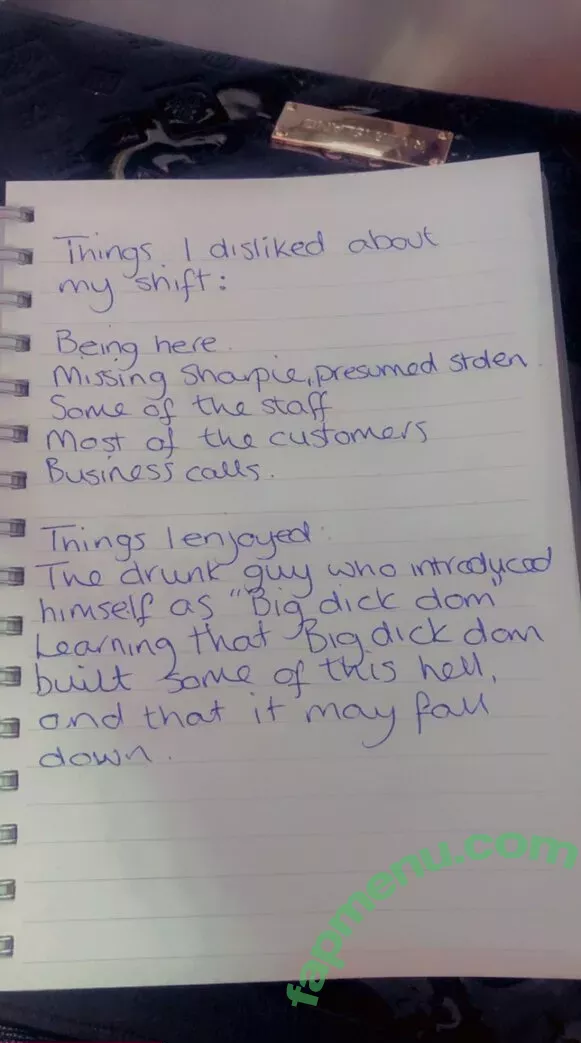 Things I disliked about
my shift:
Being here.
Missing Sharpie, presumed stolen.
Some of the staff
Most of the customers
Business calls.
Things I enjoyed:
The drunk guy who introduced
himself as "Big dick dom"
Learning that Big dick dom
built some of this hell,
and that it may fall
down.
fapmenu.com